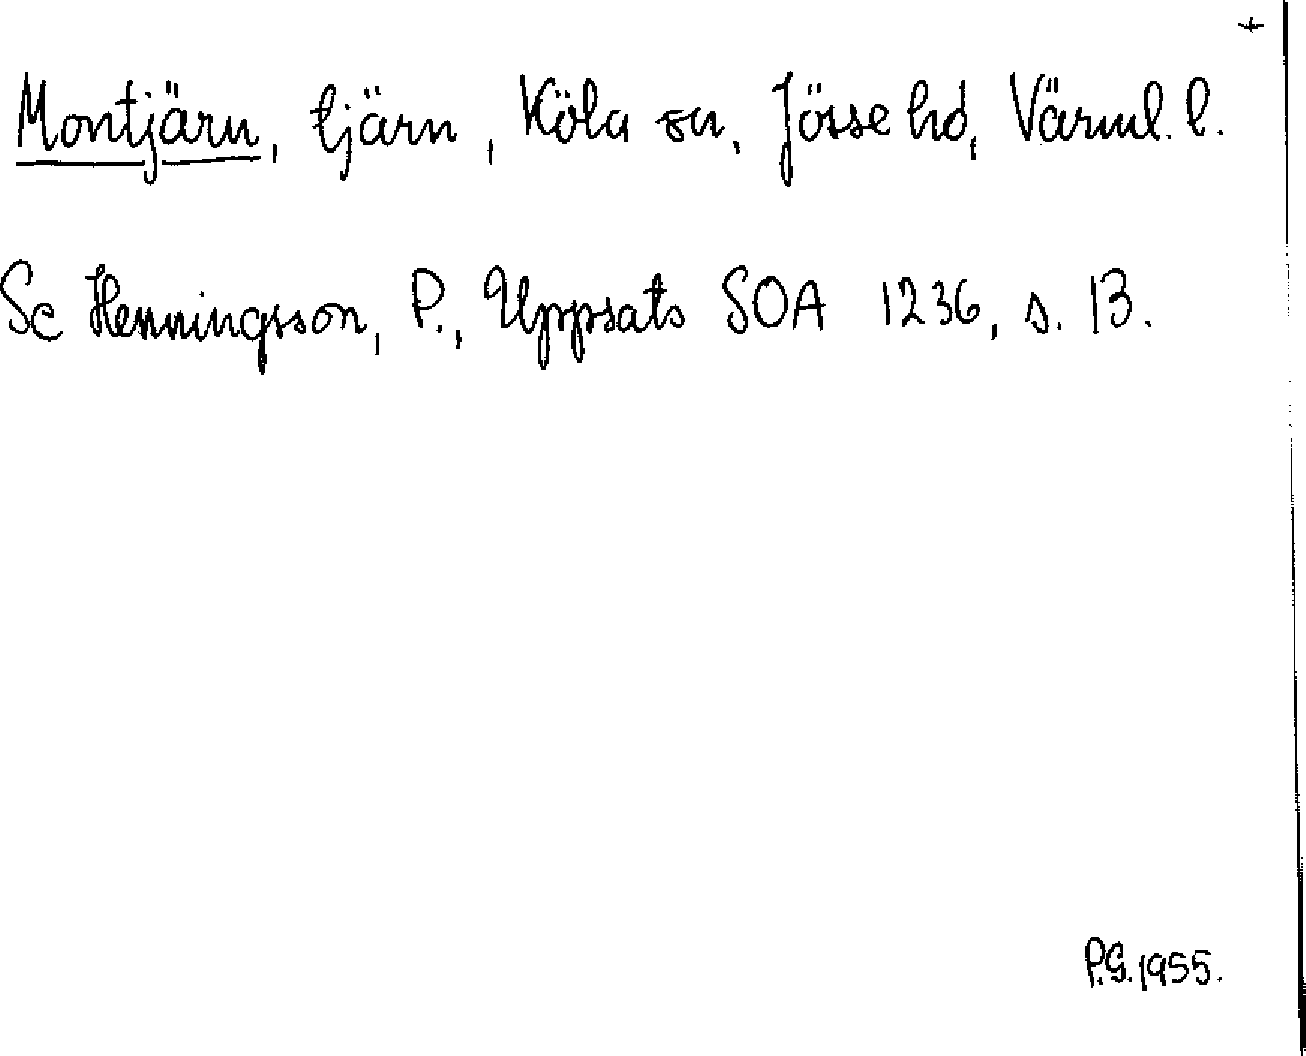 +
Montjärn, tjärn, Köla sn, Jösse hd, Värml. l.
Se Henningsson, P., Uppsats SOA 1236, s. 13.
P.G. 1955.